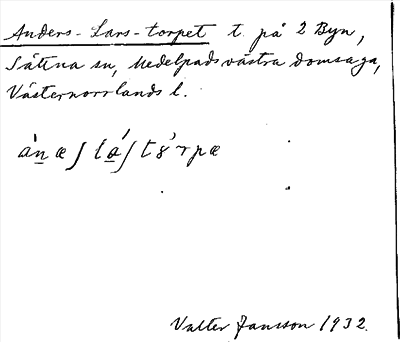 Anders-Lars-torpet t. på 2 Byn,
Sättna sn, Medelpads västra domsaga,
Västernorrlands l.
Valter Jansson 1932.